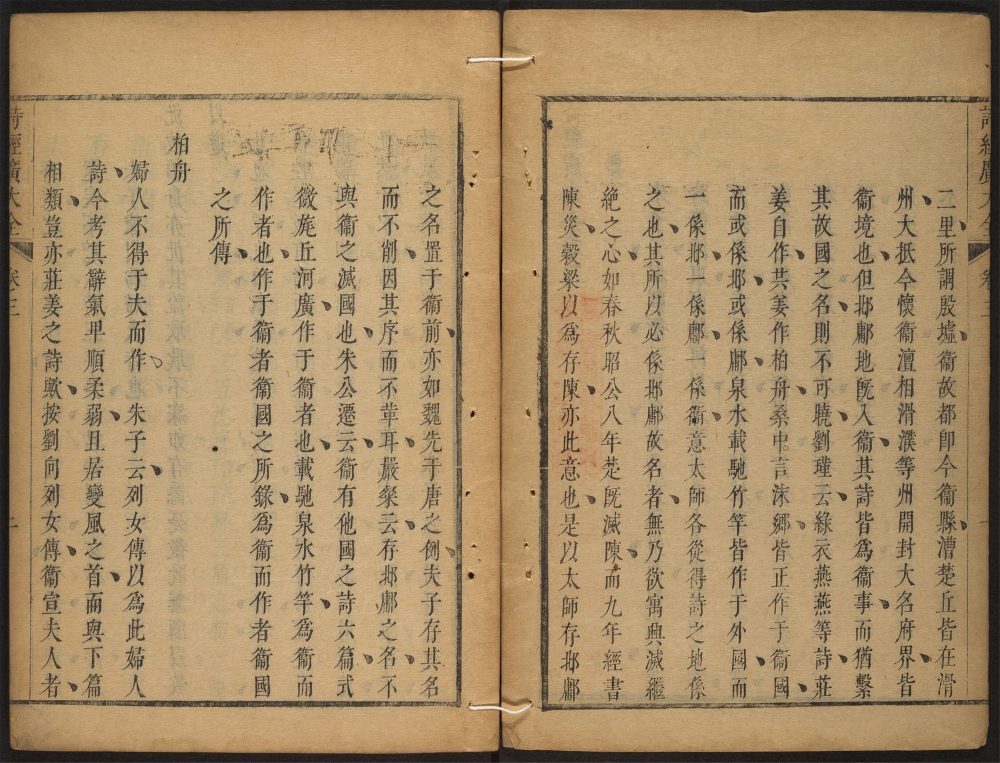 詩經廣大全 卷三 一
二里所謂殷墟衛故都即今衛縣漕楚丘皆在滑
州大抵今懷衛澶相滑濮等州開封大名府界皆
衛境也但邶鄘地既入衛其詩皆為衛事而猶繫
其故國之名則不可曉劉瑾云綠衣燕燕等詩莊
姜自作共姜作柏舟桑中言沬鄉皆正作于衛國
而或係邶或係鄘泉水載馳竹竿皆作于外國而
一係邶一係鄘一係衛意太師各從得詩之地係
之也其所以必係邶鄘故名者無乃欲寓興滅繼
絕之心如春秋昭公八年楚既滅陳而九年經書
陳災穀梁以為存陳亦此意也是以太師存邶鄘
之名置于衛前亦如魏先于唐之例夫子存其名
而不削因其序而不革耳嚴粲云存邶鄘之名不
與衛之滅國也朱公遷云衛有他國之詩六篇式
微旄丘河廣作于衛者也載馳泉水竹竿為衛而
作者也作于衛者衛國之所錄為衛而作者衛國
之所傳
柏舟
婦人不得于夫而作 朱子云列女傳以為此婦人
詩今考其辭氣卑順柔弱且居變風之首而與下篇
相類豈亦莊姜之詩歟按劉向列女傳衛宣夫人者
詩經廣大全 卷三 一